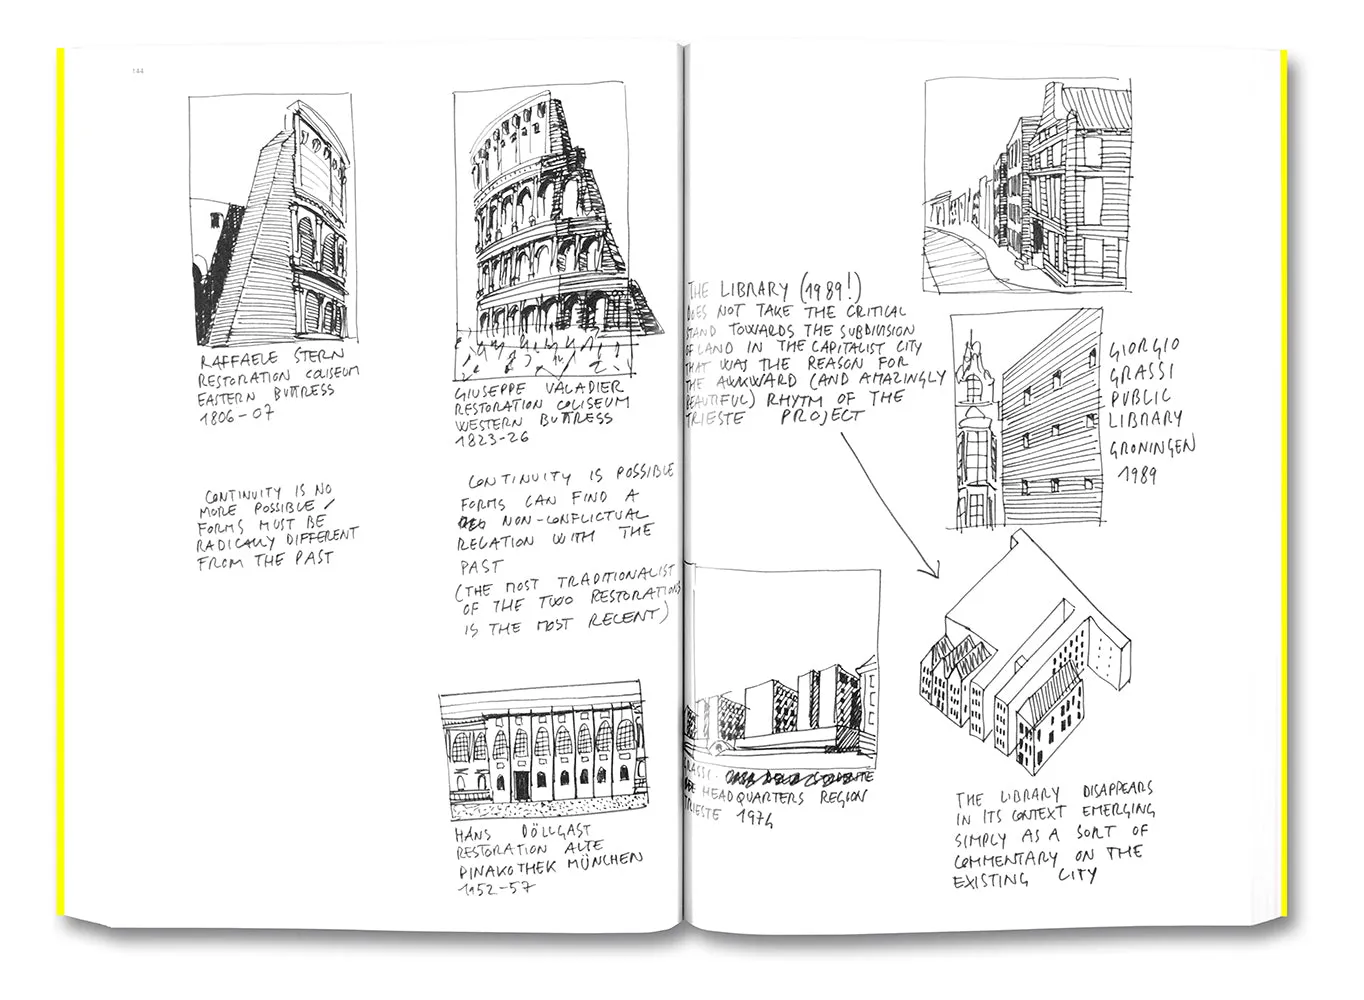 144
RAFFAELE STERN
RESTORATION COLISEUM
EASTERN BUTTRESS
1806-07
CONTINUITY IS NO
MORE POSSIBLE /
FORMS MUST BE
RADICALLY DIFFERENT
FROM THE PAST
GIUSEPPE VALADIER
RESTORATION COLISEUM
WESTERN BUTTRESS
1823-26
CONTINUITY IS POSSIBLE
FORMS CAN FIND A
NON-CONFLICTUAL
RELATION WITH THE
PAST
(THE MOST TRADITIONALIST
OF THE TWO RESTORATIONS
IS THE MOST RECENT)
HANS DÖLLGAST
RESTORATION ALTE
PINAKOTHEK MÜNCHEN
1952-57
THE LIBRARY (1989!)
DOES NOT TAKE THE CRITICAL
STAND TOWARDS THE SUBDIVISION
OF LAND IN THE CAPITALIST CITY
THAT WAS THE REASON FOR
THE AWKWARD (AND AMAZINGLY
BEAUTIFUL) RHYTM OF THE
TRIESTE PROJECT
GIORGIO
GRASSI
PUBLIC
LIBRARY
GRONINGEN
1989
GRASSI.
HEADQUARTERS REGION
TRIESTE 1974
THE LIBRARY DISAPPEARS
IN ITS CONTEXT EMERGING
SIMPLY AS A SORT OF
COMMENTARY ON THE
EXISTING CITY